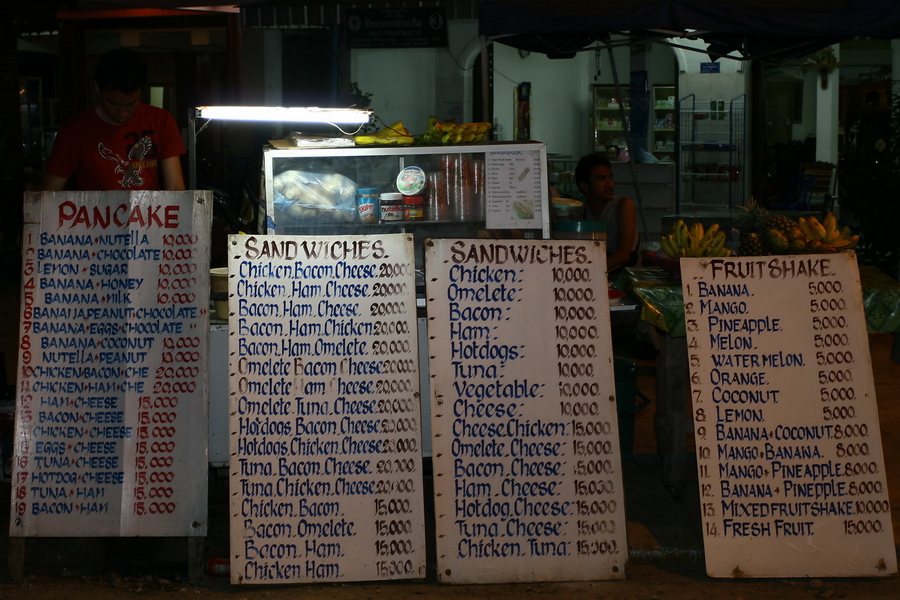 3
PANCAKE
1 BANANA+NUTELLA 10,000
2 BANANA+CHOCOLATE 10,000
3 LEMON+SUGAR 10,000
4 BANANA+HONEY 10,000
5 BANANA+MILK 10,000
6 BANANA PEANUT CHOCOLATE "
7 BANANA+EGGS+CHOCOLATE "
8 BANANA+COCONUT 10,000
9 NUTELLA+PEANUT 10,000
10 CHICKEN+BACON+CHE 20,000
11 CHICKEN+HAM+CHE 20,000
12 HAM+CHEESE 15,000
13 BACON+CHEESE 15,000
14 CHICKEN+CHEESE 15,000
15 EGGS+CHEESE 15,000
16 TUNA+CHEESE 15,000
17 HOTDOG+CHEESE 15,000
18 TUNA+HAM 15,000
19 BACON+HAM 15,000
SANDWICHES.
Chicken,Bacon,Cheese. 20,000
Chicken,Ham,Cheese. 20,000.
Bacon,Ham,Cheese. 20,000.
Bacon,Ham,Chicken 20,000.
Bacon,Ham,Omelete. 20,000.
Omelete Bacon Cheese 20,000.
Omelete Ham Cheese 20,000.
Omelete,Tuna,Cheese. 20,000.
Hotdogs,Bacon,Cheese 20,000.
Hotdogs,Chicken,Cheese 20,000.
Tuna,Bacon,Cheese. 20,000.
Tuna,Chicken,Cheese 20,000.
Chicken,Bacon. 15,000.
Bacon,Omelete. 15,000.
Bacon,Ham. 15,000.
Chicken Ham. 15,000.
SANDWICHES.
Chicken: 10,000.
Omelete: 10,000.
Bacon: 10,000.
Ham: 10,000.
Hotdogs: 10,000.
Tuna: 10,000.
Vegetable: 10,000.
Cheese: 10,000.
Cheese,Chicken: 15,000.
Omelete,Cheese: 15,000.
Bacon,Cheese: 15,000.
Ham,Cheese: 15,000.
Hotdog,Cheese: 15,000.
Tuna,Cheese: 15,000.
Chicken,Tuna: 15,000.
FRUIT SHAKE.
1. BANANA. 5,000.
2. MANGO. 5,000.
3. PINEAPPLE. 5,000.
4. MELON. 5,000.
5. WATER MELON. 5,000.
6. ORANGE. 5,000.
7. COCONUT 5,000.
8. LEMON. 5,000.
9. BANANA+COCONUT. 8,000.
10. MANGO+BANANA. 8,000.
11. MANGO+PINEAPPLE. 8,000.
12. BANANA+PINEAPPLE. 8,000.
13. MIXED FRUIT SHAKE. 10,000
14. FRESH FRUIT. 15,000.